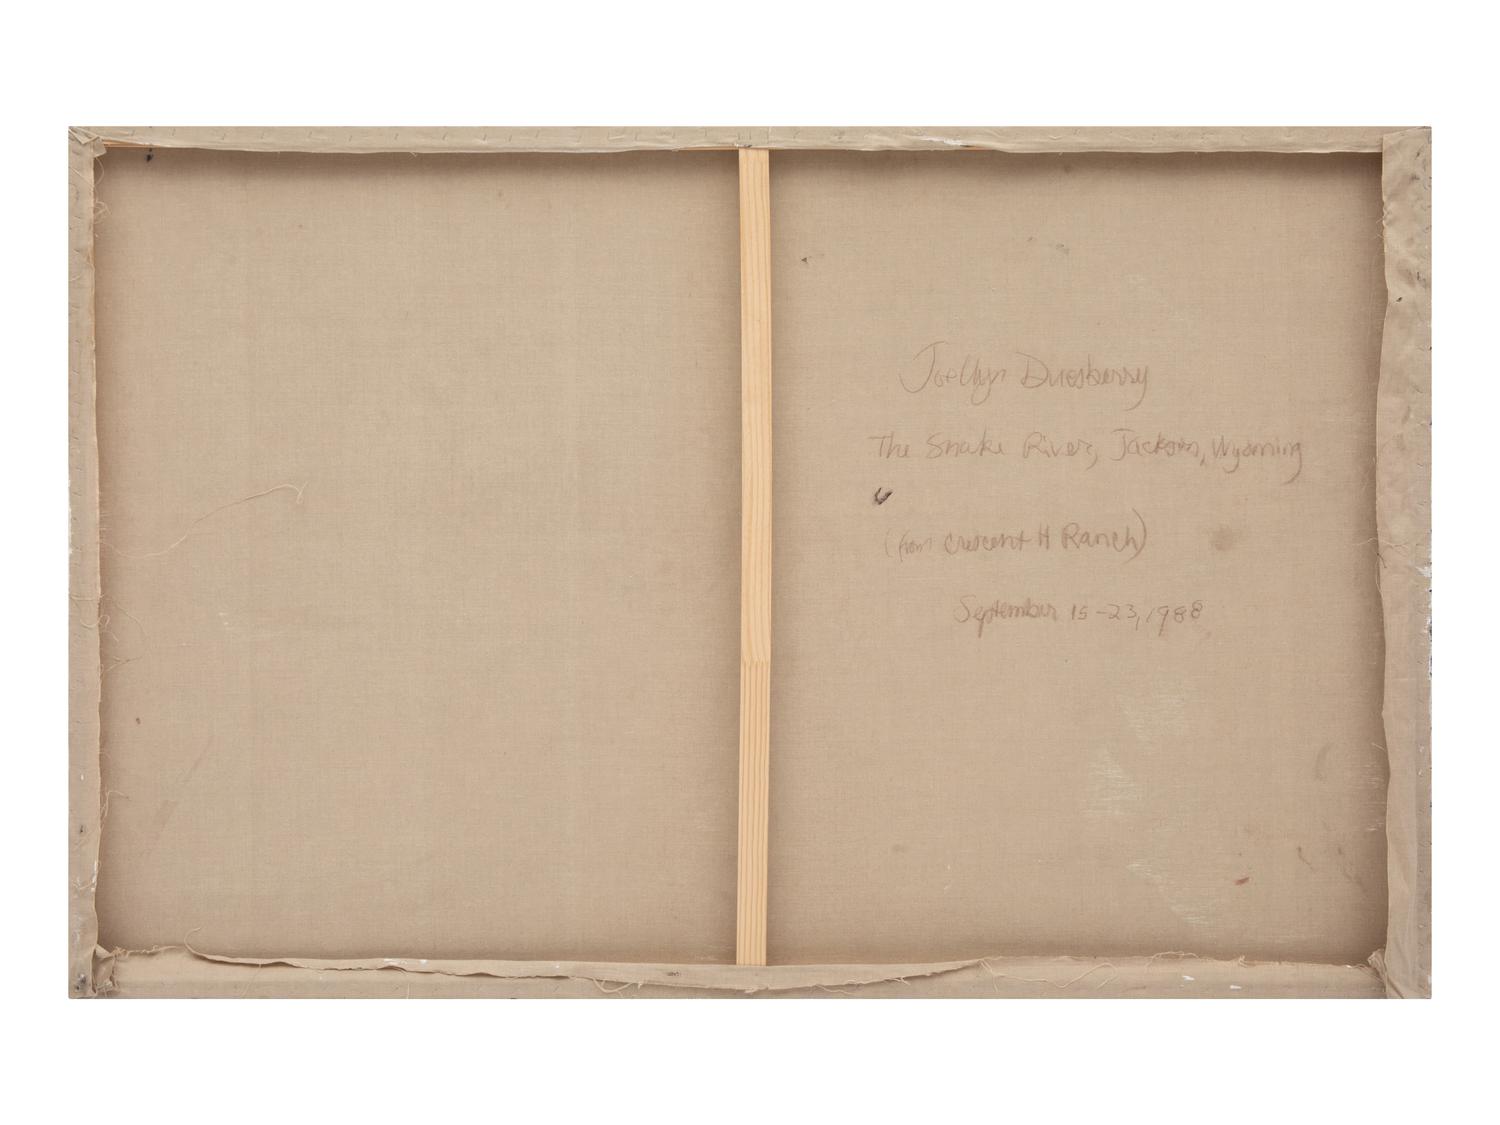 Joellyn Duesberry
The Snake River, Jackson, Wyoming
(from Crescent H Ranch)
September 15-23, 1988